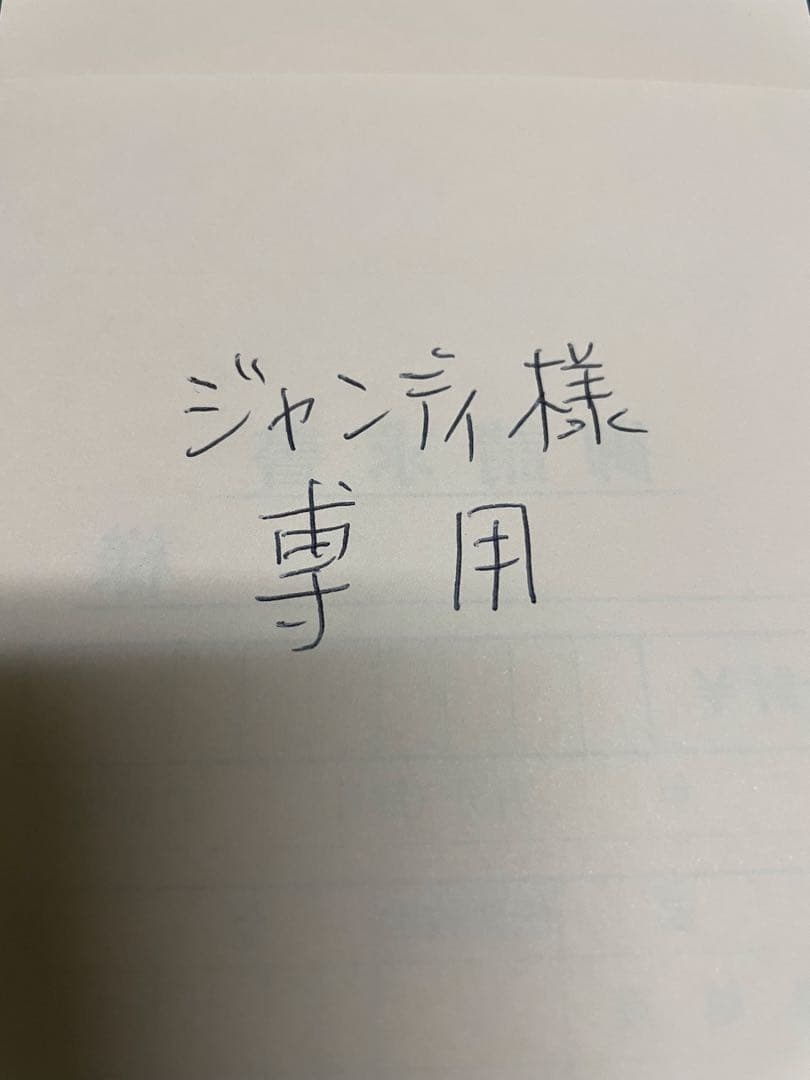 ジャンティ様
専用